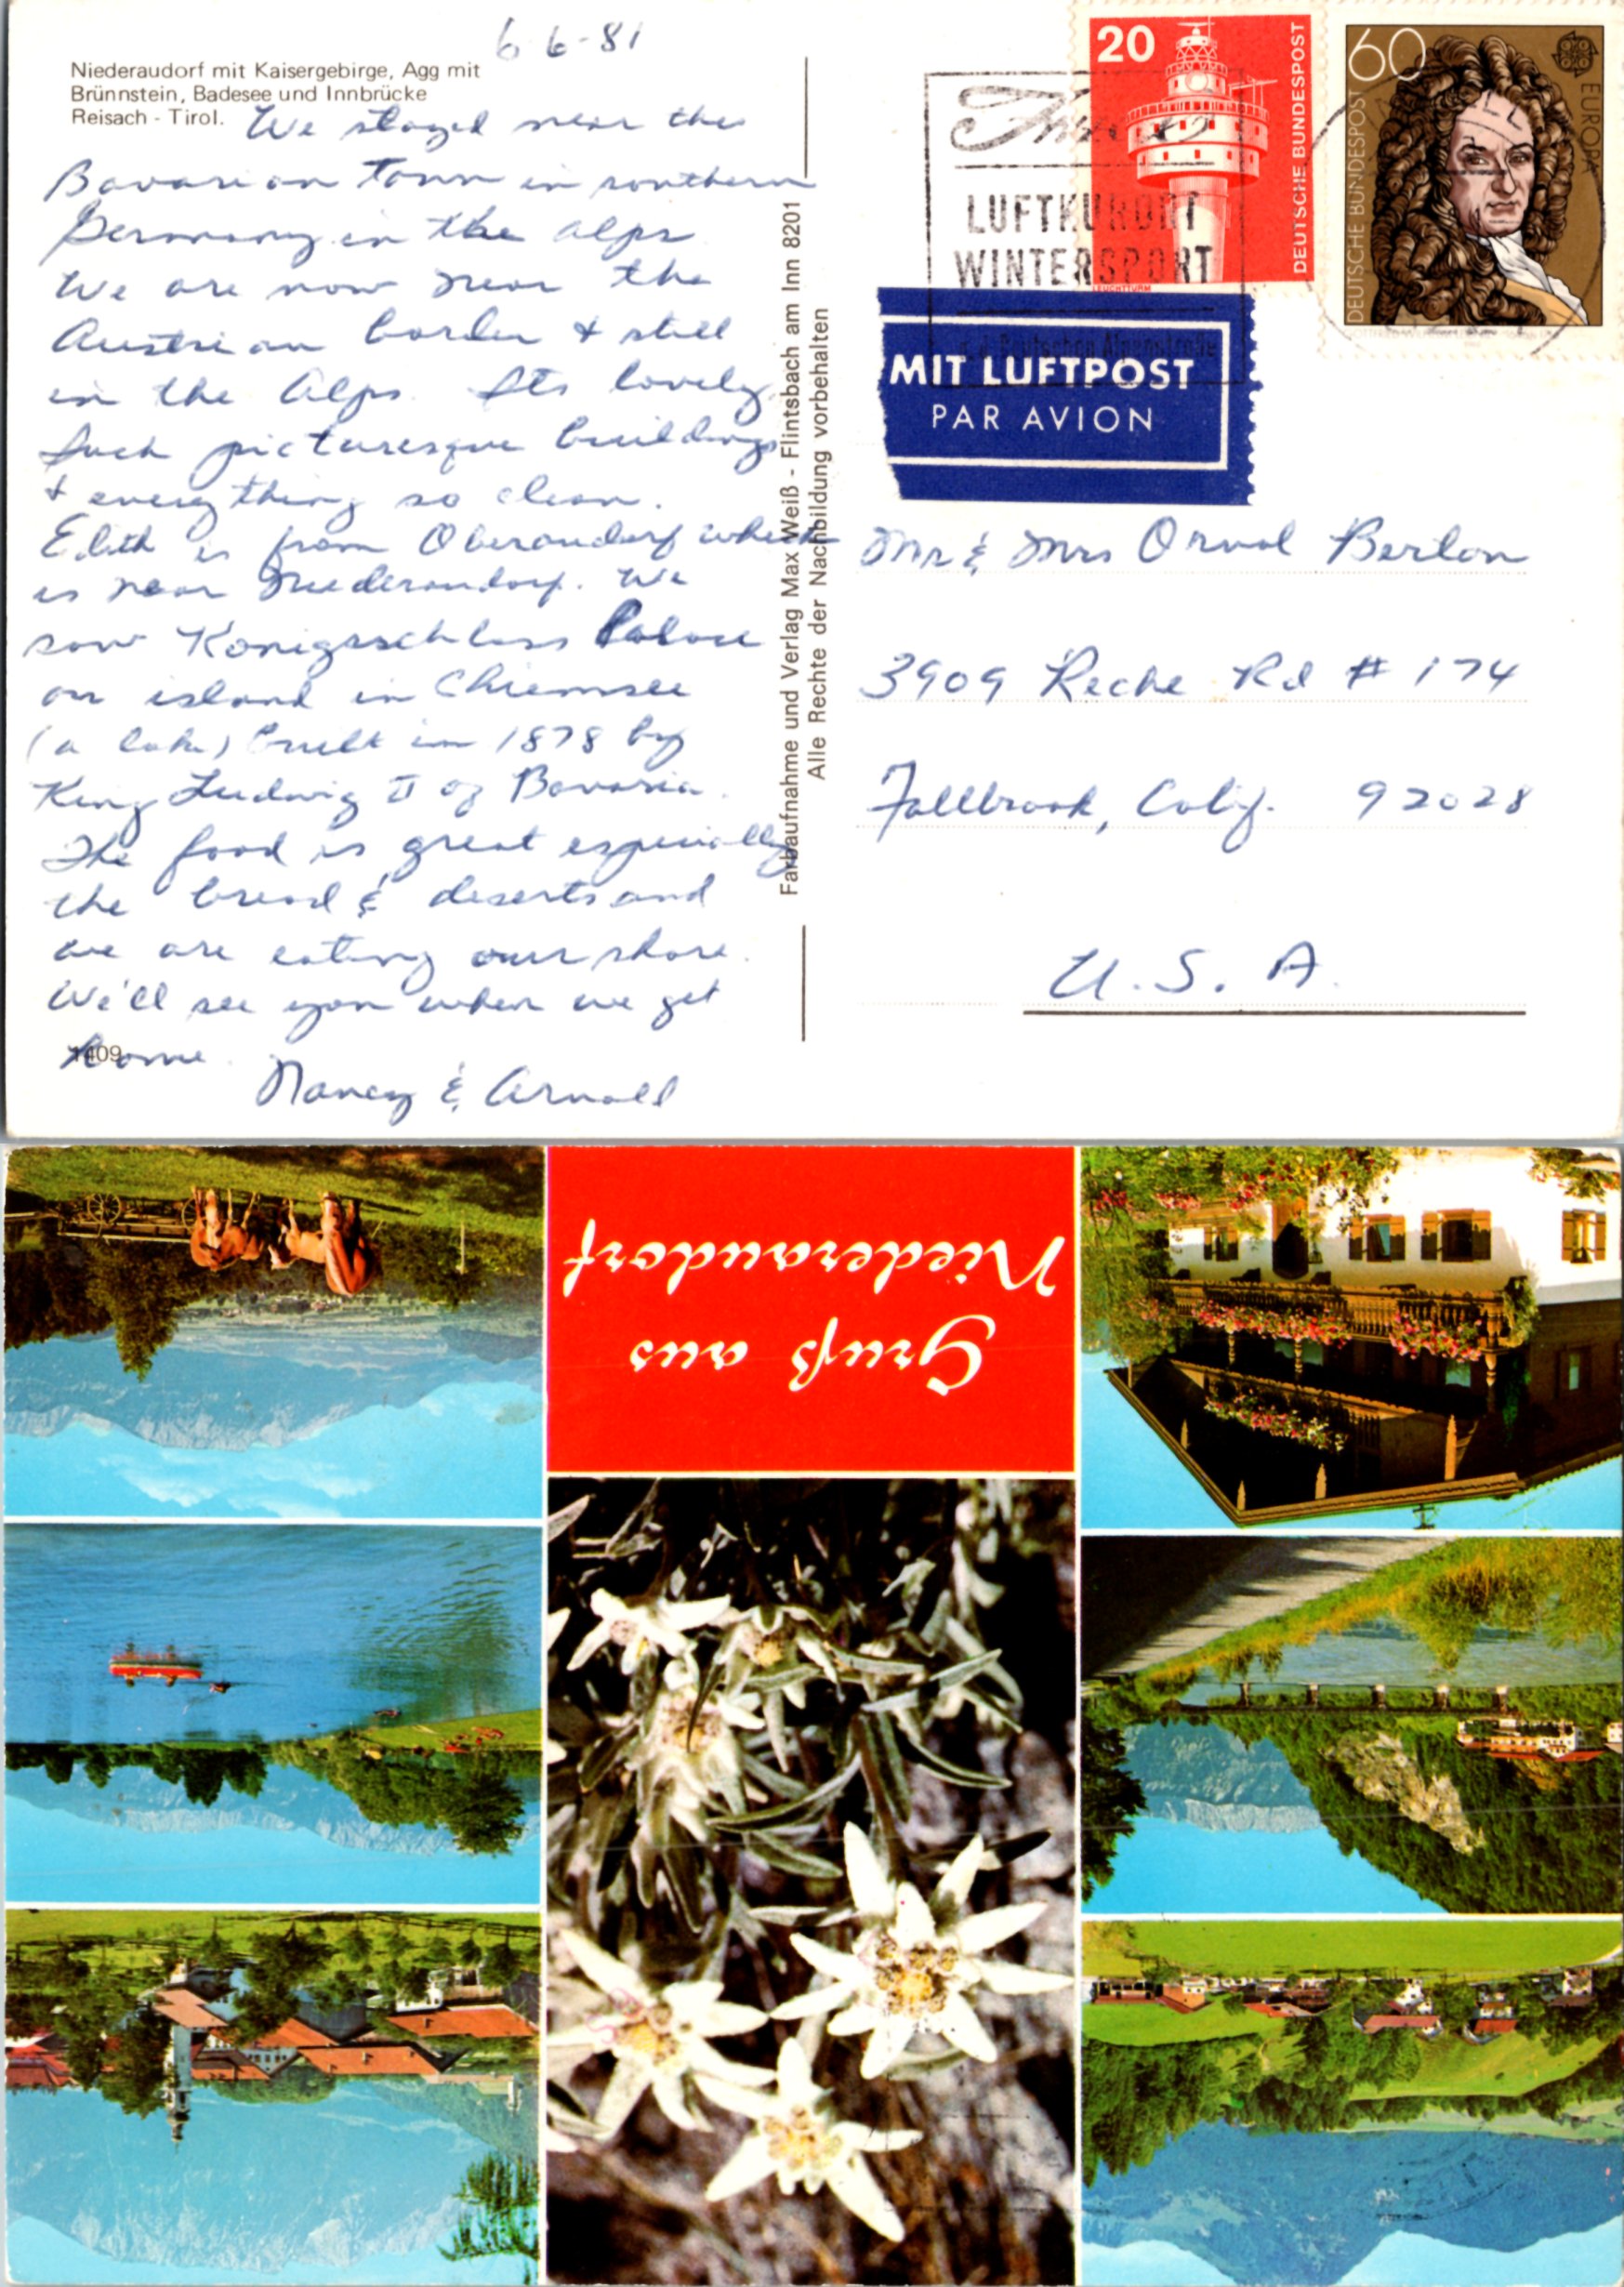 6-6-81
Niederaudorf mit Kaisergebirge, Agg mit
Brünnstein, Badesee und Innbrücke
Reisach - Tirol.
We stayed near this
Bavarian town in southern
Germany in the alps
We are now near the
Austrian border & still
in the Alps. Its lovely.
Such picturesque buildings
& everything so clean.
Edith is from Oberaudorf which
is near Niederaudorf. We
saw Konigsschloss Palace
on island in Chiemsee
(a lake) built in 1878 by
King Ludwig II of Bavaria.
The food is great especially
the bread & deserts and
we are eating our share.
We'll see you when we get
home.
Nancy & Arnold
1409
Farbaufnahme und Verlag Max Weiß - Flintsbach am Inn 8201
Alle Rechte der Nachbildung vorbehalten
LUFTKURORT
WINTERSPORT
a. d. Deutschen Alpenstraße
20
DEUTSCHE BUNDESPOST
LEUCHTTURM
60
EUROPA
DEUTSCHE BUNDESPOST
MIT LUFTPOST
PAR AVION
Mr & Mrs Orval Berlon
3909 Reche Rd # 174
Fallbrook, Calif. 92028
U.S.A.
Gruß aus
Niederaudorf